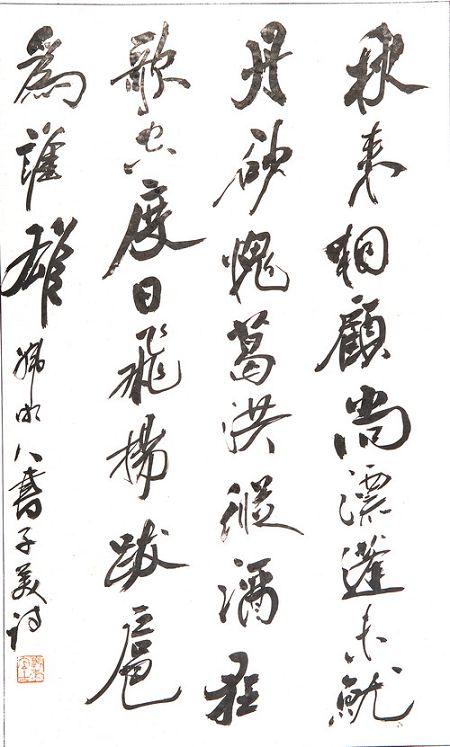 秋来相顧尚漂蓬未就
丹砂愧葛洪縱酒狂
歌空度日飛揚跋扈
為誰雄
書子美詩